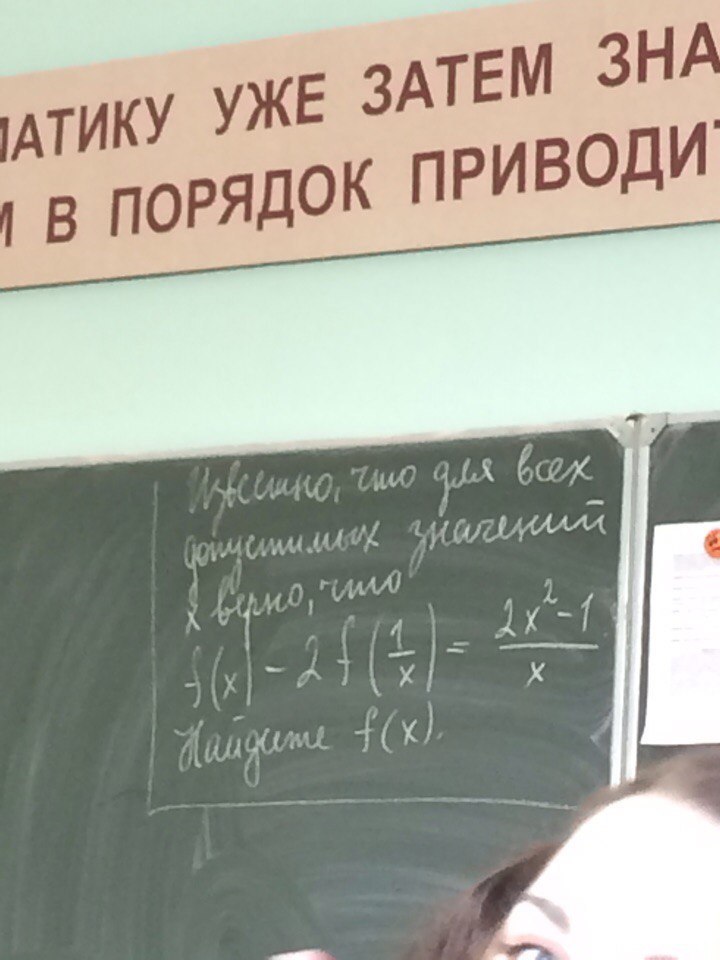 МАТИКУ УЖЕ ЗАТЕМ ЗНА
М В ПОРЯДОК ПРИВОДИТ
Известно, что для всех
допустимых значений
x верно, что
f(x) - 2f(1/x) = (2x²-1)/x
Найдите f(x).